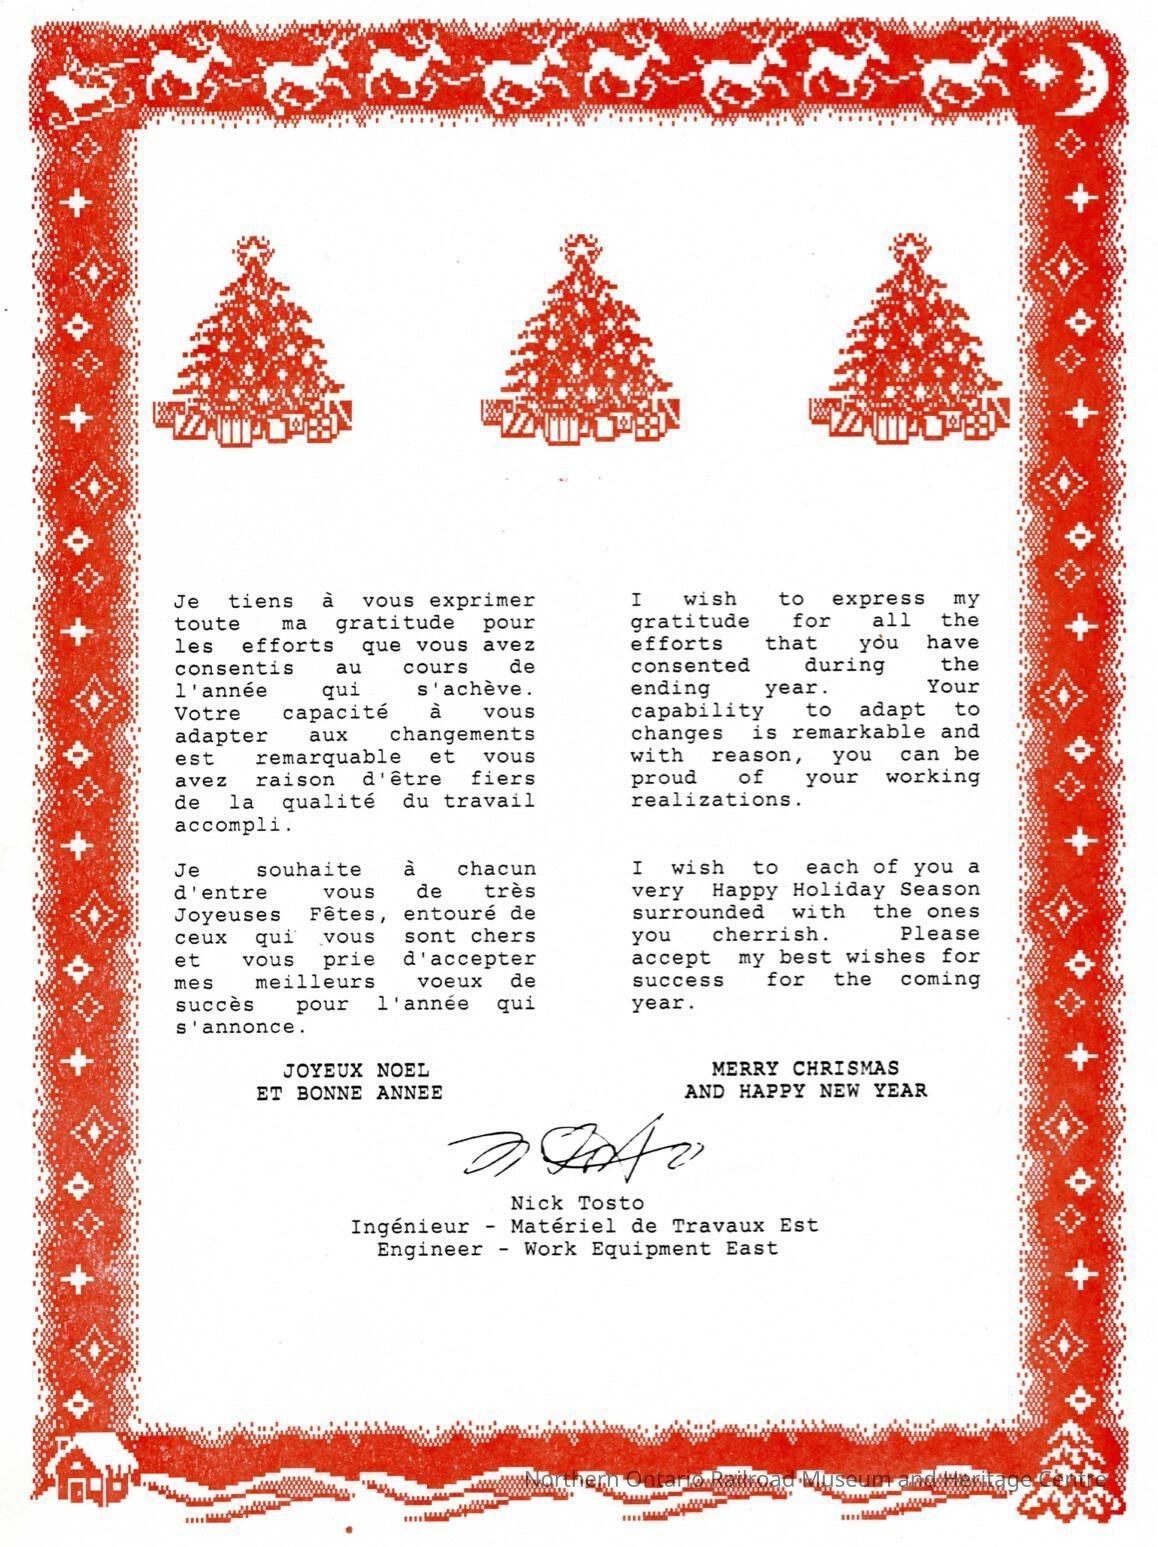 Je tiens à vous exprimer
toute ma gratitude pour
les efforts que vous avez
consentis au cours de
l'année qui s'achève.
Votre capacité à vous
adapter aux changements
est remarquable et vous
avez raison d'être fiers
de la qualité du travail
accompli.
Je souhaite à chacun
d'entre vous de très
Joyeuses Fêtes, entouré de
ceux qui vous sont chers
et vous prie d'accepter
mes meilleurs voeux de
succès pour l'année qui
s'annonce.
JOYEUX NOEL
ET BONNE ANNEE
I wish to express my
gratitude for all the
efforts that you have
consented during the
ending year. Your
capability to adapt to
changes is remarkable and
with reason, you can be
proud of your working
realizations.
I wish to each of you a
very Happy Holiday Season
surrounded with the ones
you cherrish. Please
accept my best wishes for
success for the coming
year.
MERRY CHRISMAS
AND HAPPY NEW YEAR
Nick Tosto
Ingénieur - Matériel de Travaux Est
Engineer - Work Equipment East
Northern Ontario Railroad Museum and Heritage Centre